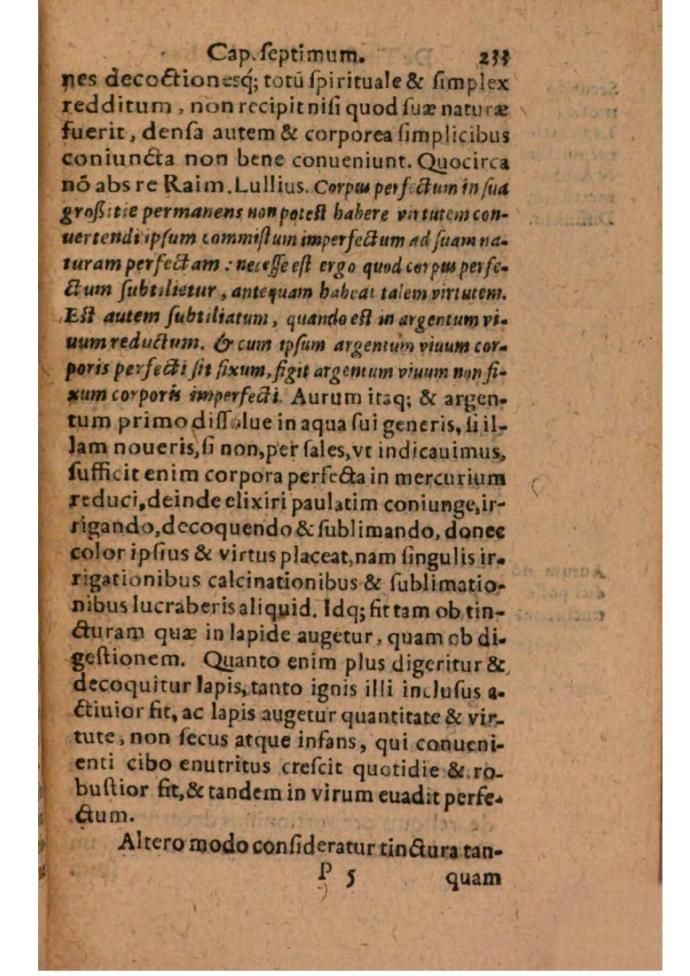 Cap. ſeptimum. 233
nes decoctionesq́; totū ſpirituale & ſimplex
redditum, non recipit niſi quod ſuæ naturæ
fuerit, denſa autem & corporea ſimplicibus
coniuncta non bene conueniunt. Quocirca
nō abs re Raim. Lullius. Corpus perfectum in ſua
groſsitie permanens non poteſt habere virtutem con-
uertendi ipſum commiſtum imperfectum ad ſuam na-
turam perfectam : neceſſe eſt ergo quod corpus perfe-
ctum ſubtilietur, antequam habeat talem virtutem.
Eſt autem ſubtiliatum, quando eſt in argentum vi-
uum reductum. & cum ipſum argentum viuum cor-
poris perfecti ſit fixum, figit argentum viuum non fi-
xum corporis imperfecti. Aurum itaq; & argen-
tum primo diſſolue in aqua ſui generis, ſi il-
lam noueris, ſi non, per ſales, vt indicauimus,
ſufficit enim corpora perfecta in mercurium
reduci, deinde elixiri paulatim coniunge, ir-
rigando, decoquendo & ſublimando, donec
color ipſius & virtus placeat, nam ſingulis ir-
rigationibus calcinationibus & ſublimatio-
nibus lucraberis aliquid. Idq; fit tam ob tin-
cturam quæ in lapide augetur, quam ob di-
geſtionem. Quanto enim plus digeritur &
decoquitur lapis, tanto ignis illi incluſus a-
ctiuior fit, ac lapis augetur quantitate & vir-
tute, non ſecus atque infans, qui conueni-
enti cibo enutritus creſcit quotidie & ro-
buſtior fit, & tandem in virum euadit perfe-
ctum.
Altero modo conſideratur tinctura tan-
P 5 quam